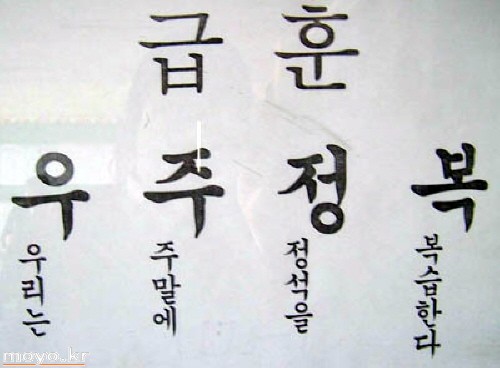 급훈
우주정복
우리는 주말에 정석을 복습한다
moyo.kr